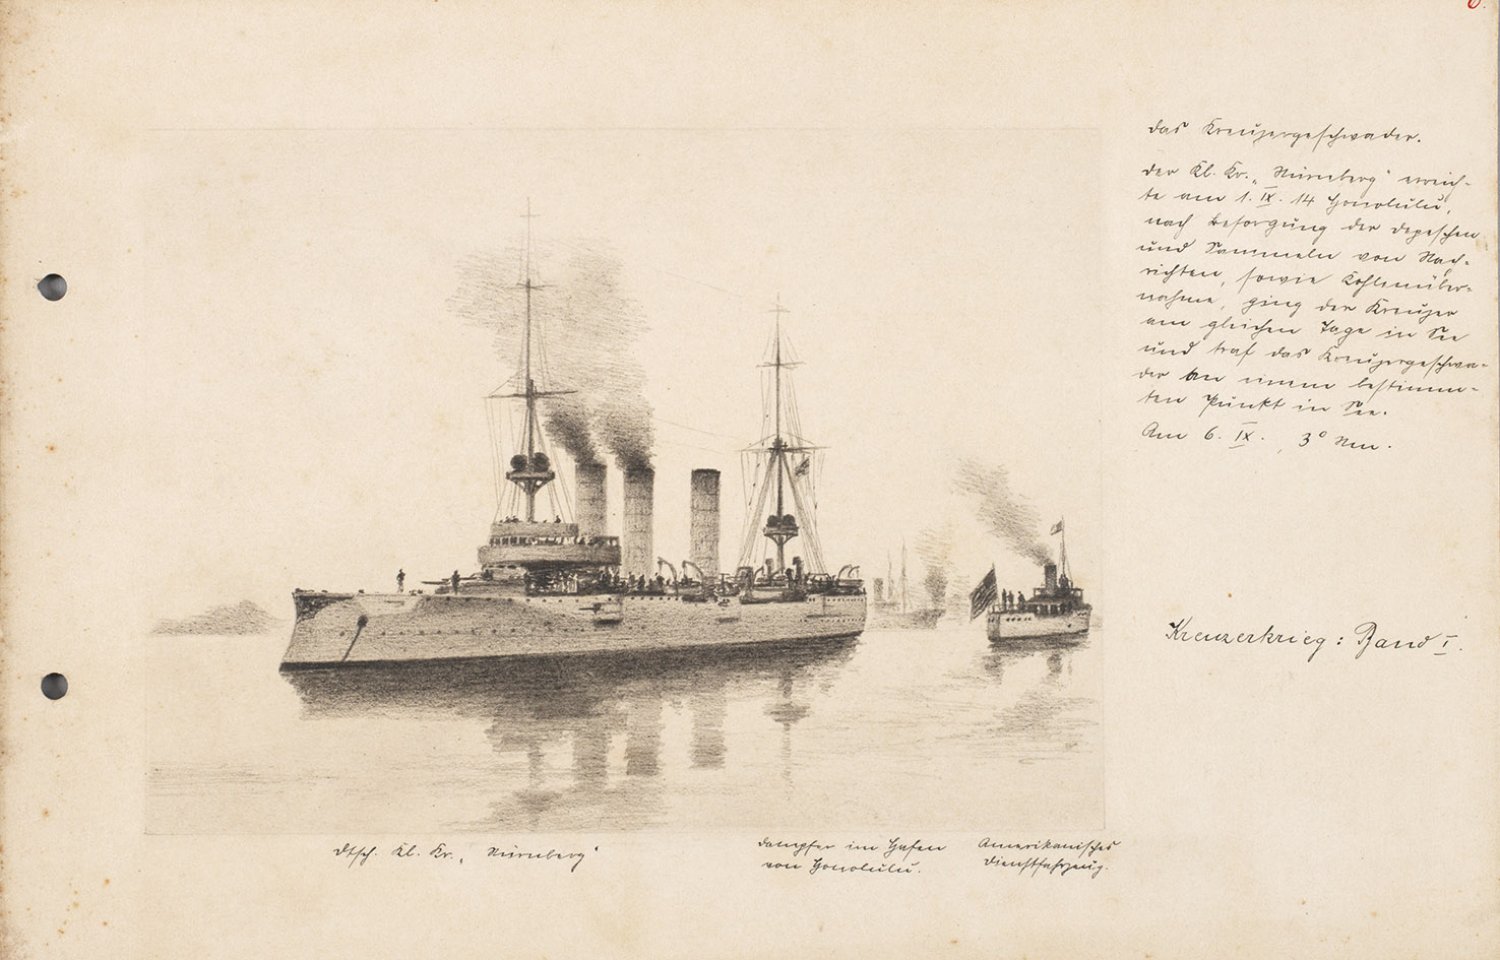 das Kreuzergeschwader.
der Kl. Kr. „Nürnberg“ erreich-
te am 1. IX. 14 Honolulu,
nach Besorgung der Depeschen
und Sammeln von Nach-
richten, sowie Kohlenüber-
nahme, ging der Kreuzer
am gleichen Tage in See
und traf das Kreuzergeschwa-
der an einem bestimm-
ten Punkt in See.
Am 6. IX., 3° Nm.
Kreuzerkrieg: Band I.
dtsch. Kl. Kr. „Nürnberg“
Dampfer im Hafen
von Honolulu.
Amerikanisches
Dienstfahrzeug.